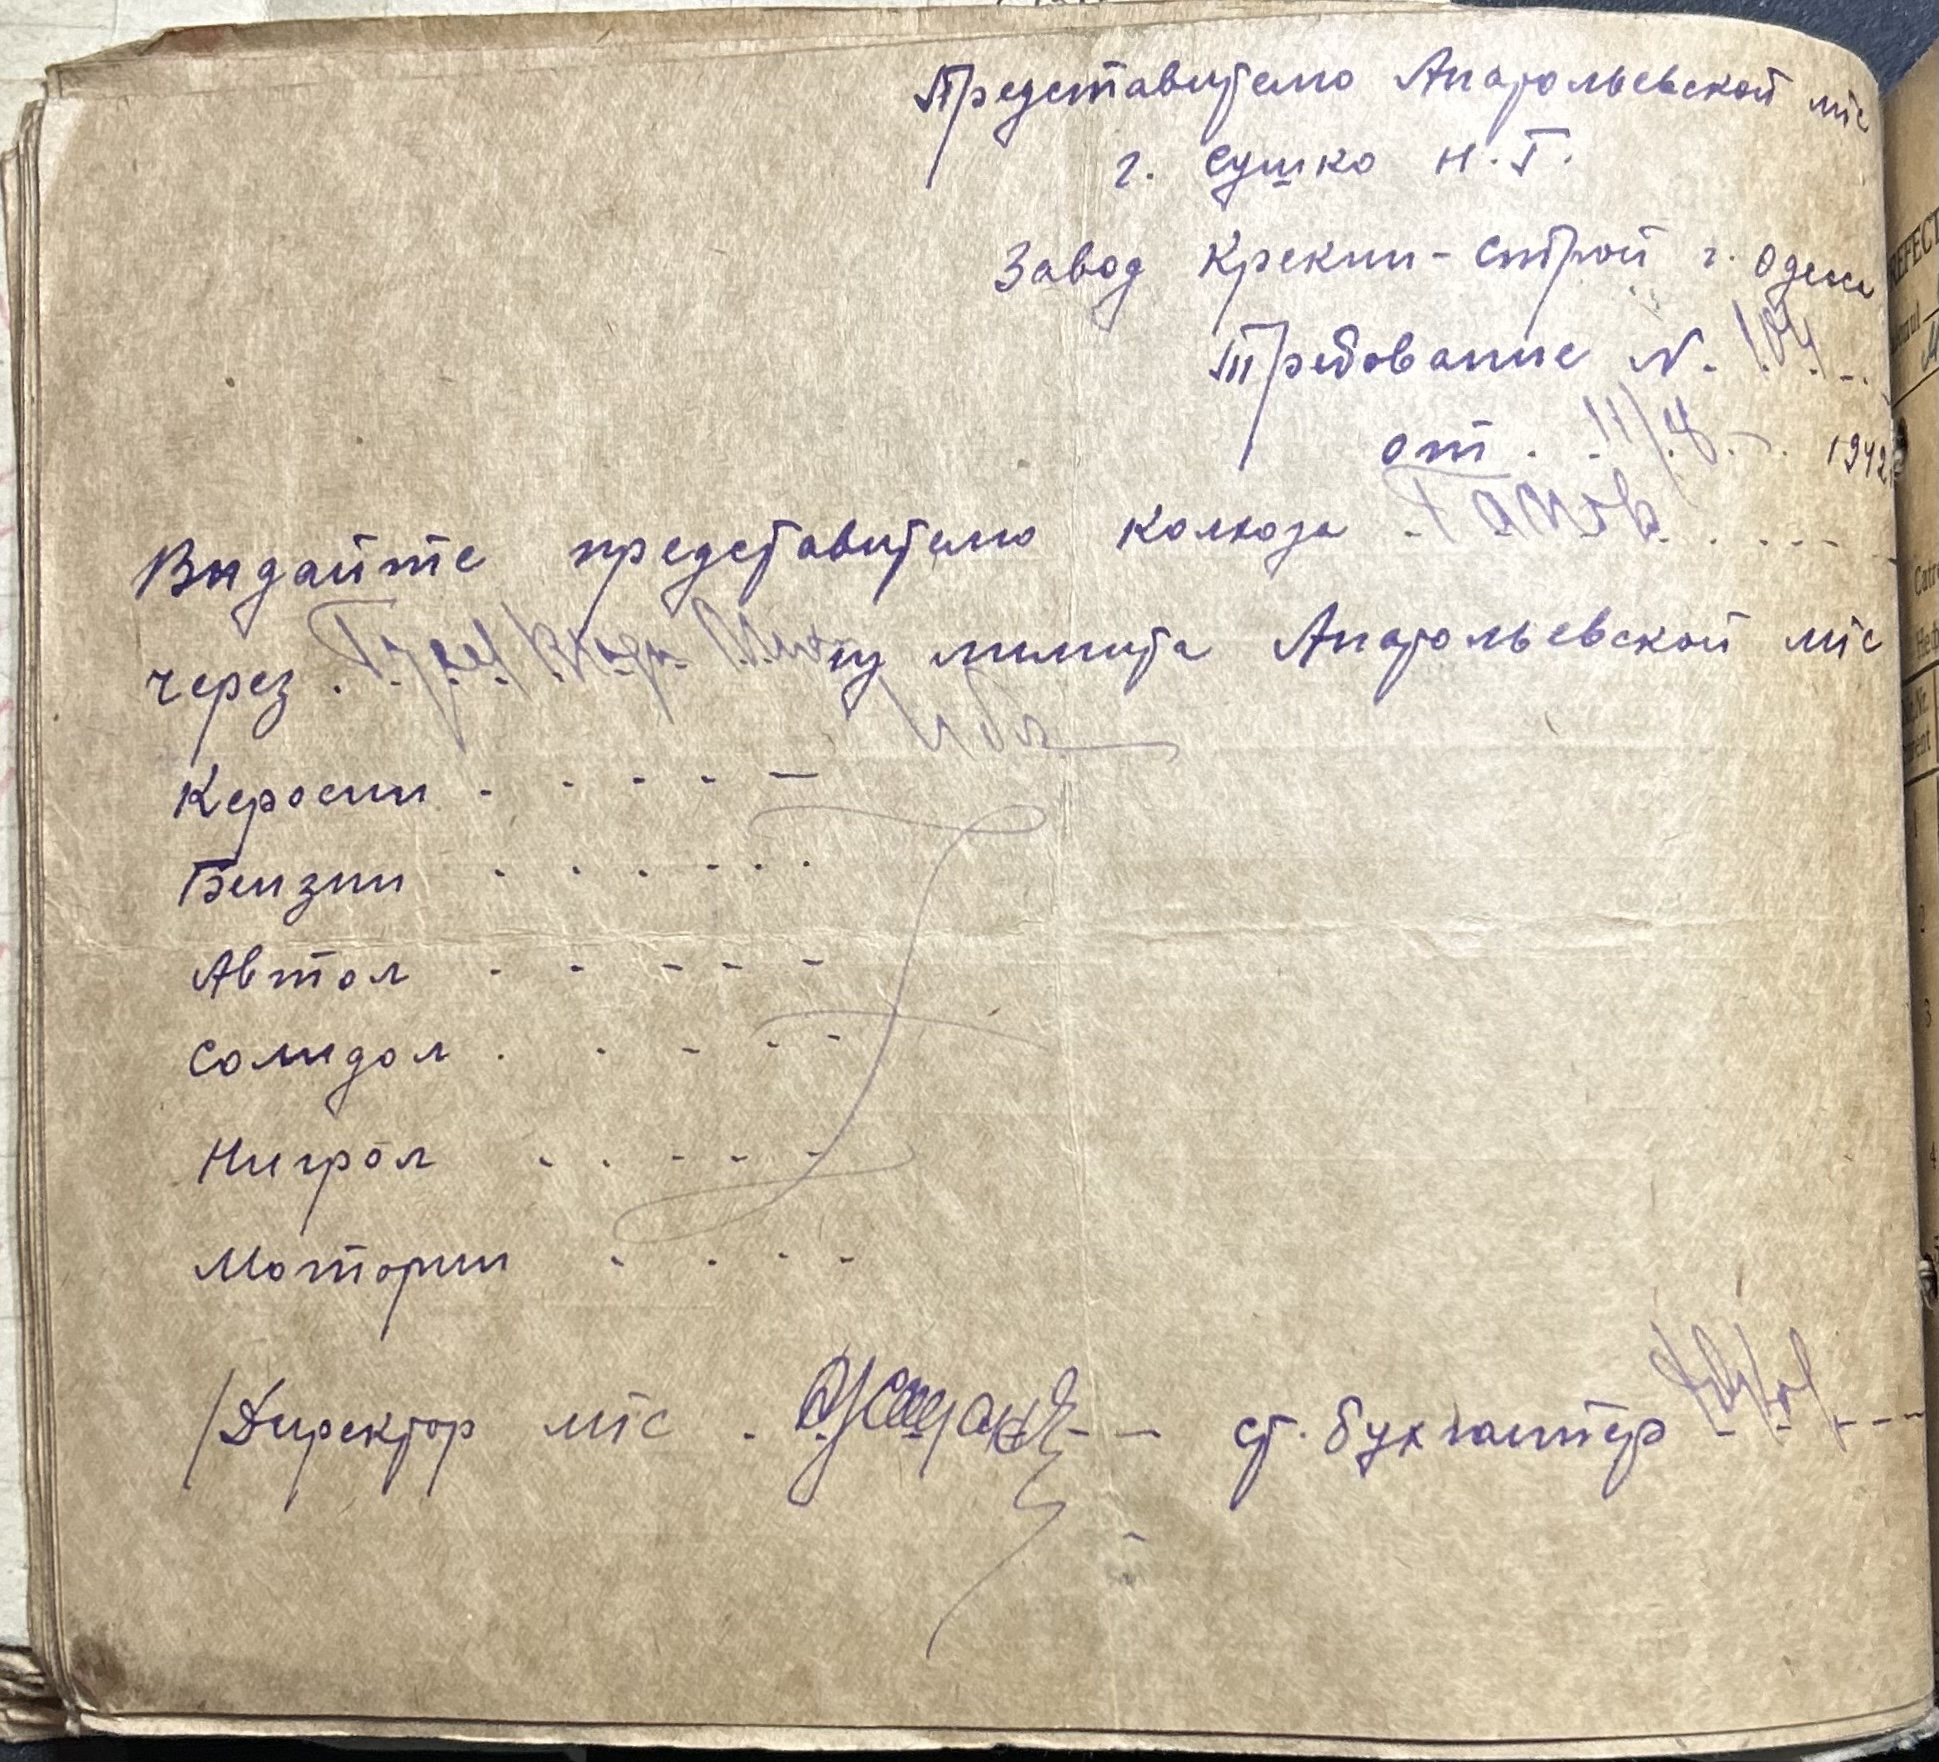 Представителю Анатольевской мтс
г. Сушко Н.Г.
Завод Крекин-строй г. Одесса
Требование N. 104
от 11/8 1942
Выдайте представителю колхоза
через из лимита Анатольевской мтс
Керосин
Бензин
Автол
Солидол
Нигрол
Моторин
Директор мтс ст. бухгалтер
REFECT